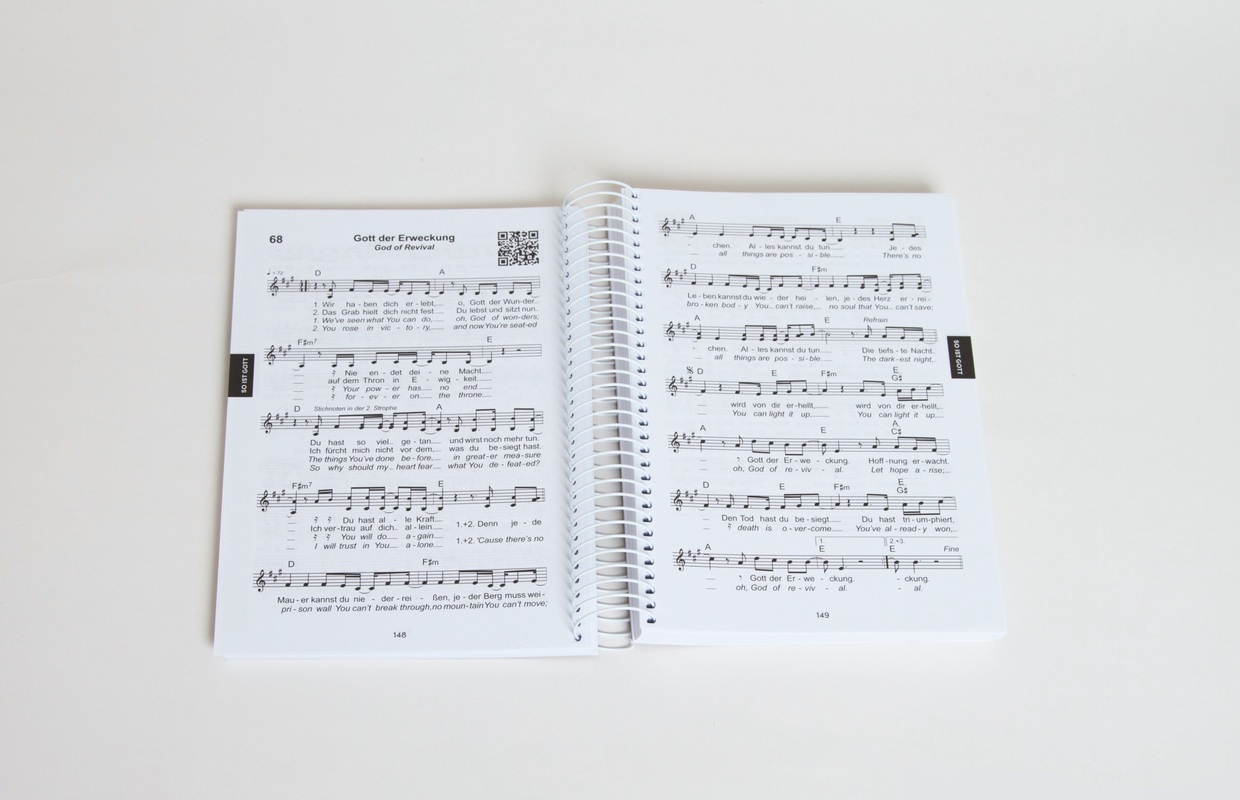 68
Gott der Erweckung
God of Revival
♩ = 72
D A
1. Wir ha - ben dich er - lebt, o, Gott der Wun-der.
2. Das Grab hielt dich nicht fest. Du lebst und sitzt nun.
1. We've seen what You can do, oh, God of won-ders;
2. You rose in vic - to - ry, and now You're seat-ed
F♯m7 E
Nie en - det dei - ne Macht.
auf dem Thron in E - wig - keit.
Your pow - er has no end
for - ev - er on the throne.
D Stichnoten in der 2. Strophe A
Du hast so viel ge - tan und wirst noch mehr tun.
Ich fürcht mich nicht vor dem, was du be - siegt hast.
The things You've done be - fore, in great-er mea-sure
So why should my heart fear what You de - feat-ed?
F♯m7 E
Du hast al - le Kraft. 1.+2. Denn je - de
Ich ver-trau auf dich al - lein.
You will do a - gain. 1.+2. 'Cause there's no
I will trust in You a - lone.
D F♯m
Mau - er kannst du nie - der - rei - ßen, je - der Berg muss wei -
pri - son wall You can't break through, no moun-tain You can't move;
148
SO IST GOTT
A E
- chen. Al - les kannst du tun. Je - des
all things are pos - si - ble. There's no
D F♯m
Le - ben kannst du wie - der hei - len, je - des Herz er - rei -
bro - ken bod - y You can't raise, no soul that You can't save;
A E Refrain
- chen. Al - les kannst du tun. Die tiefs - te Nacht
all things are pos - si - ble. The dark-est night
D E F♯m E
G♯
wird von dir er-hellt, wird von dir er-hellt,
You can light it up, You can light it up,
A E A
C♯
Gott der Er - we - ckung. Hoff - nung er - wacht.
oh, God of re - viv - al. Let hope a - rise;
D E F♯m E
G♯
Den Tod hast du be - siegt. Du hast tri - um - phiert,
death is o - ver-come. You've al - read - y won,
1. 2.+3.
A E E Fine
Gott der Er - we - ckung. - ckung.
oh, God of re - viv - al. - al.
149
SO IST GOTT